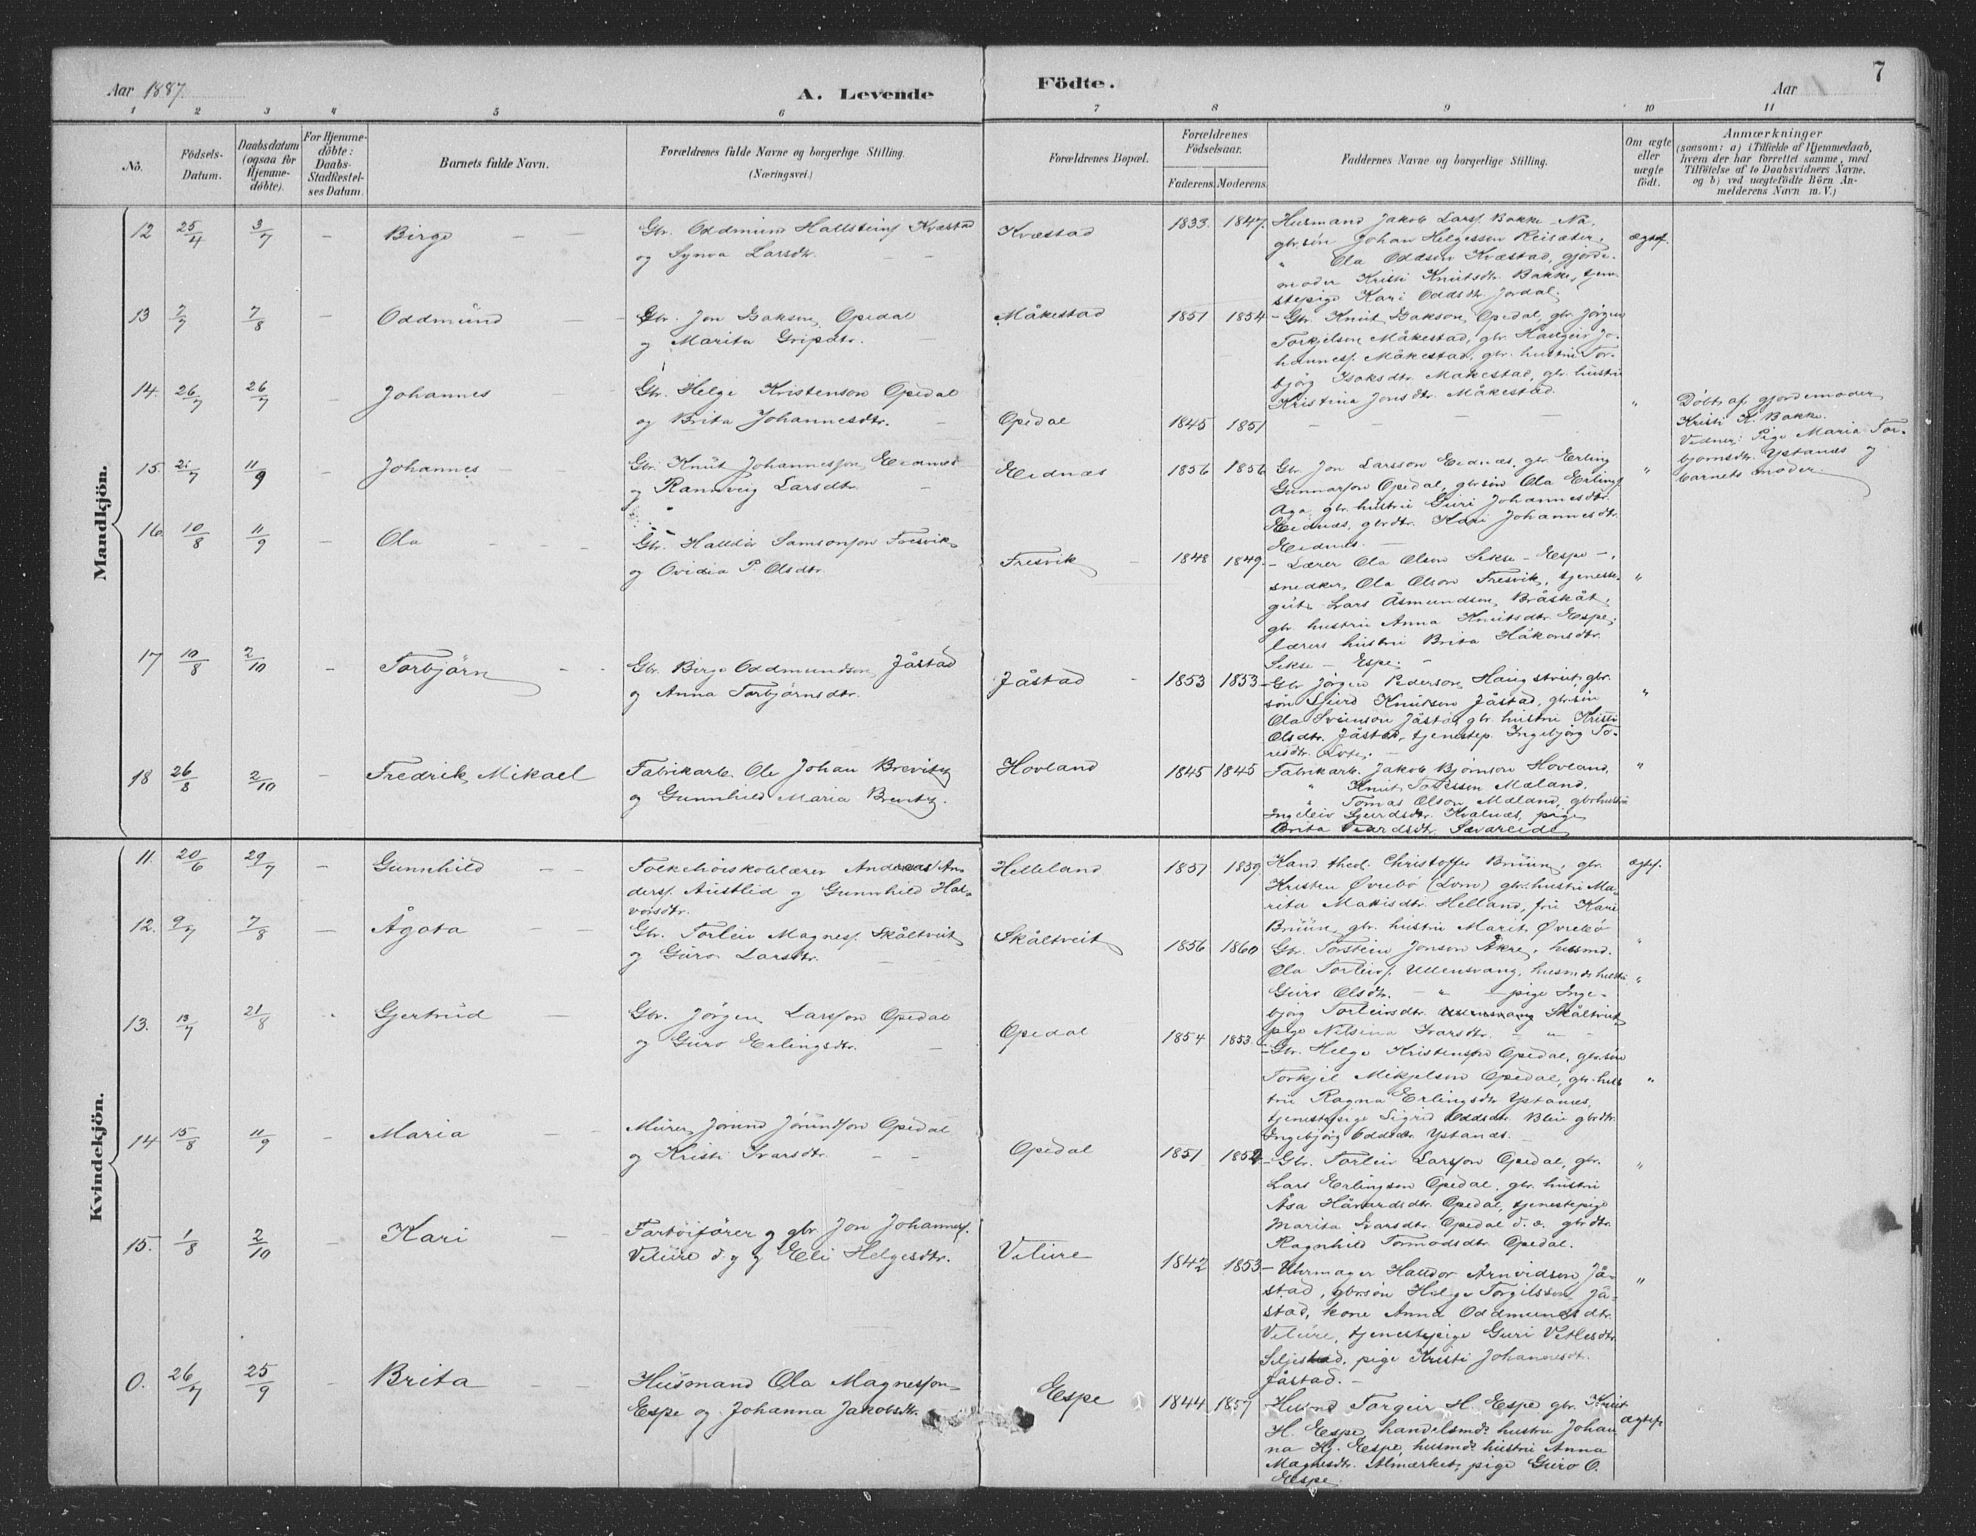 Aar 1887.
A. Levende
Födte.
Aar
7
1 2 3 4 5 6 7 8 9 10 11
No.
Födsels-Datum.
Daabsdatum (ogsaa for Hjemmedöbte).
For Hjemmedöbte: Daabs-Stadfæstelses Datum.
Barnets fulde Navn.
Forældrenes fulde Navne og borgerlige Stilling. (Næringsvei.)
Forældrenes Bopæl.
Forældrenes Födselsaar.
Faderens. Moderens.
Faddernes Navne og borgerlige Stilling.
Om ægte eller uægte födt.
Anmærkninger
(saasom: a) i Tilfælde af Hjemmedaab,
hvem der har forrettet samme, med
Tilföielse af to Daabsvidners Navne.
og b) ved uægtefödte Börn An-
melderens Navn m. V.)
Mandkjön.
12 25/4 3/7 — Birge
Gbr. Oddmund Hallsteins. Kvæstad
og Synva Larsdtr.
Kvæstad 1833. 1847.
Husmand Jakob Larss. Bakke — Na,
gbr.søn Johan Helgessen Reisæter,
" Ola Oddsøn Kvæstad, gjorde-
moder Kristi Knutsdtr. Bakke, tjen-
stepige Kari Oddsdtr. Jordal.
ægtef.
13 7/7 7/8 — Oddmund
Gbr. Jon Isaksen Opedal
og Marita Gripsdtr.
Måkestad 1851 1854
Gbr. Knut Isakson Opedal, gbr. Jørgen
Torkjelson Måkestad, gbr. Haugeir Jo-
hanness. Måkestad, gbr. hustru Tor-
bjørg Isaksdtr. Måkestad, gbr. hustru
Kristina Jonsdtr. Måkestad.
"
14. 26/7 26/7 — Johannes
Gbr. Helge Kristenson Opedal
og Brita Johannesdtr.
Opedal 1845 1851
— — —
Døbt af gjordemoder
Kristi K. Bakke.
Vidner: Pige Maria Tor-
bjørnsdtr. Ystanes og
barnets moder.
15. 21/7 11/9 — Johannes
Gbr. Knut Johannesson Eidnes
og Rannveig Larsdtr.
Eidnæs 1856 1856
Gbr. Jon Larsson Eidnæs, gbr. Erling
Gunnarson Opedal, gbrsøn Ola Erlings.
Aga, gbr. hustru Guri Johannesdtr.
Eidnæs, gbrdtr. Kari Johannesdtr.
Eidnæs. —
"
16. 10/8 11/9 — Ola
Gbr. Halldor Samsonson Fresvik
og Ovidia P. Olsdtr.
Fresvik 1848 1849.
— Lærer Ola Olson Sekse — Espe —,
snedker Ola Olson Fresvik, tjeneste-
gut Lars Åsmundsen Bråskåt,
gbr hustru Anna Knutsdtr. Espe,
lærers hustru Brita Håkonsdtr.
Sekse — Espe.
"
17 10/8 2/10 — Torbjörn
Gbr. Birge Oddmundson Jåstad
og Anna Torbjørnsdtr.
Jåstad 1853 1853
Gbr Jörgen Pederson Haugstveit, gbr.
søn Sjurd Knutson Jåstad, gbrsøn
Ola Sveinson Jåstad, gbr. hustru Kristi
Olsdtr. Jåstad, tjenestep. Ingebjørg To-
resdtr. Lote.
"
18 26/8 2/10 — Fredrik Mikael
Fabrikarb. Ole Johan Brevitz
og Gunnhild Maria Brevitz.
Hovland 1845 1845
Fabrikarb. Jakob Bjørnson Hovland,
" Knut Mæland,
" Tomas Olson Mæland, gbr.hustru
Ingeleiv Gjerdsdtr. Kvalnæs, pige
Brita Sævareide
"
Kvindekjön.
11. 20/6 29/7 — Gunnhild
Folkehøiskolelærer Andreas An-
derss. Austlid og Gunnhild Hal-
vorsdtr.
Helleland 1851 1859
Kand. theol. Christoffer Bruun, gbr.
Kristen Øvrebø (Lom) gbr. hustru Ma-
rita Matisdtr. Helland, fru Kari
Bruun, gbr. hustru Marit Øvrebø
ægtef.
12. 9/7 7/8 — Ågota
Gbr. Torleiv Magness. Skåltveit
og Guro Larsdtr.
Skåltveit 1856 1860
Gbr. Torstein Jonson Åkre, husmd.
Ola Torleivs. Ullensvang, husmds hustru
Guro Olsdtr. — " — pige Inge-
bjørg Torleivsdtr. Skåltveit
pige Nilsina Ivarsdtr. — " —
"
13. 13/7 21/8 Gjertrud
Gbr. Jørgen Larsson Opedal
og Guro Erlingsdtr.
Opedal 1854 1853
Gbr. Helge Kristenson Opedal, gbr.søn
Torkjel Mikjelson Opedal, gbr. hus-
tru Ragna Erlingsdtr Ystanes,
tjenestepige Sigrid Oddsdtr Bleie gbrdtr.
Ingebjørg Oddsdtr. Ystanes. —
"
14 15/8 11/9 — Maria
Murer Jørund Jørundson Opedal
og Kristi Ivarsdtr.
Opedal 1851 1852
Gbr. Torleiv Larsson Opedal, gbr.
Lars Erlingson Opedal, gbr. hustru
Åsa Håvardsdtr Opedal, tjenestepige
Marita Ivarsdtr. Opedal d. o. gbrdtr.
Ragnhild Tormodsdtr. Opedal.
"
15. 1/8 2/10 — Kari
Fartøifører og gbr Jon Johanness.
Viture d. y og Eli Helgesdtr.
Viture 1842 1853
— Uhrmager Halldor Arnvidson Jå-
stad, gbr.søn Helge Torgilsson Jå-
stad, kone Anna Oddmundsdtr
Viture, tjenestepige Guri Vetlesdtr
Seljestad, pige Kristi Johannesdt.
Jåstad. —
"
0. 26/7 25/9 — Brita
Husmand Ola Magnesson
Espe og Johanna Jakobsdtr.
Espe 1844 1857
Husmd Torgeir H. Espe gbr. Knut
H. Espe, handelsmds hustru Johan
na Hj. Espe, husmds hustru Anna
Magnesdtr. Almerket, pige Guro O.
Espe.
ægtef.